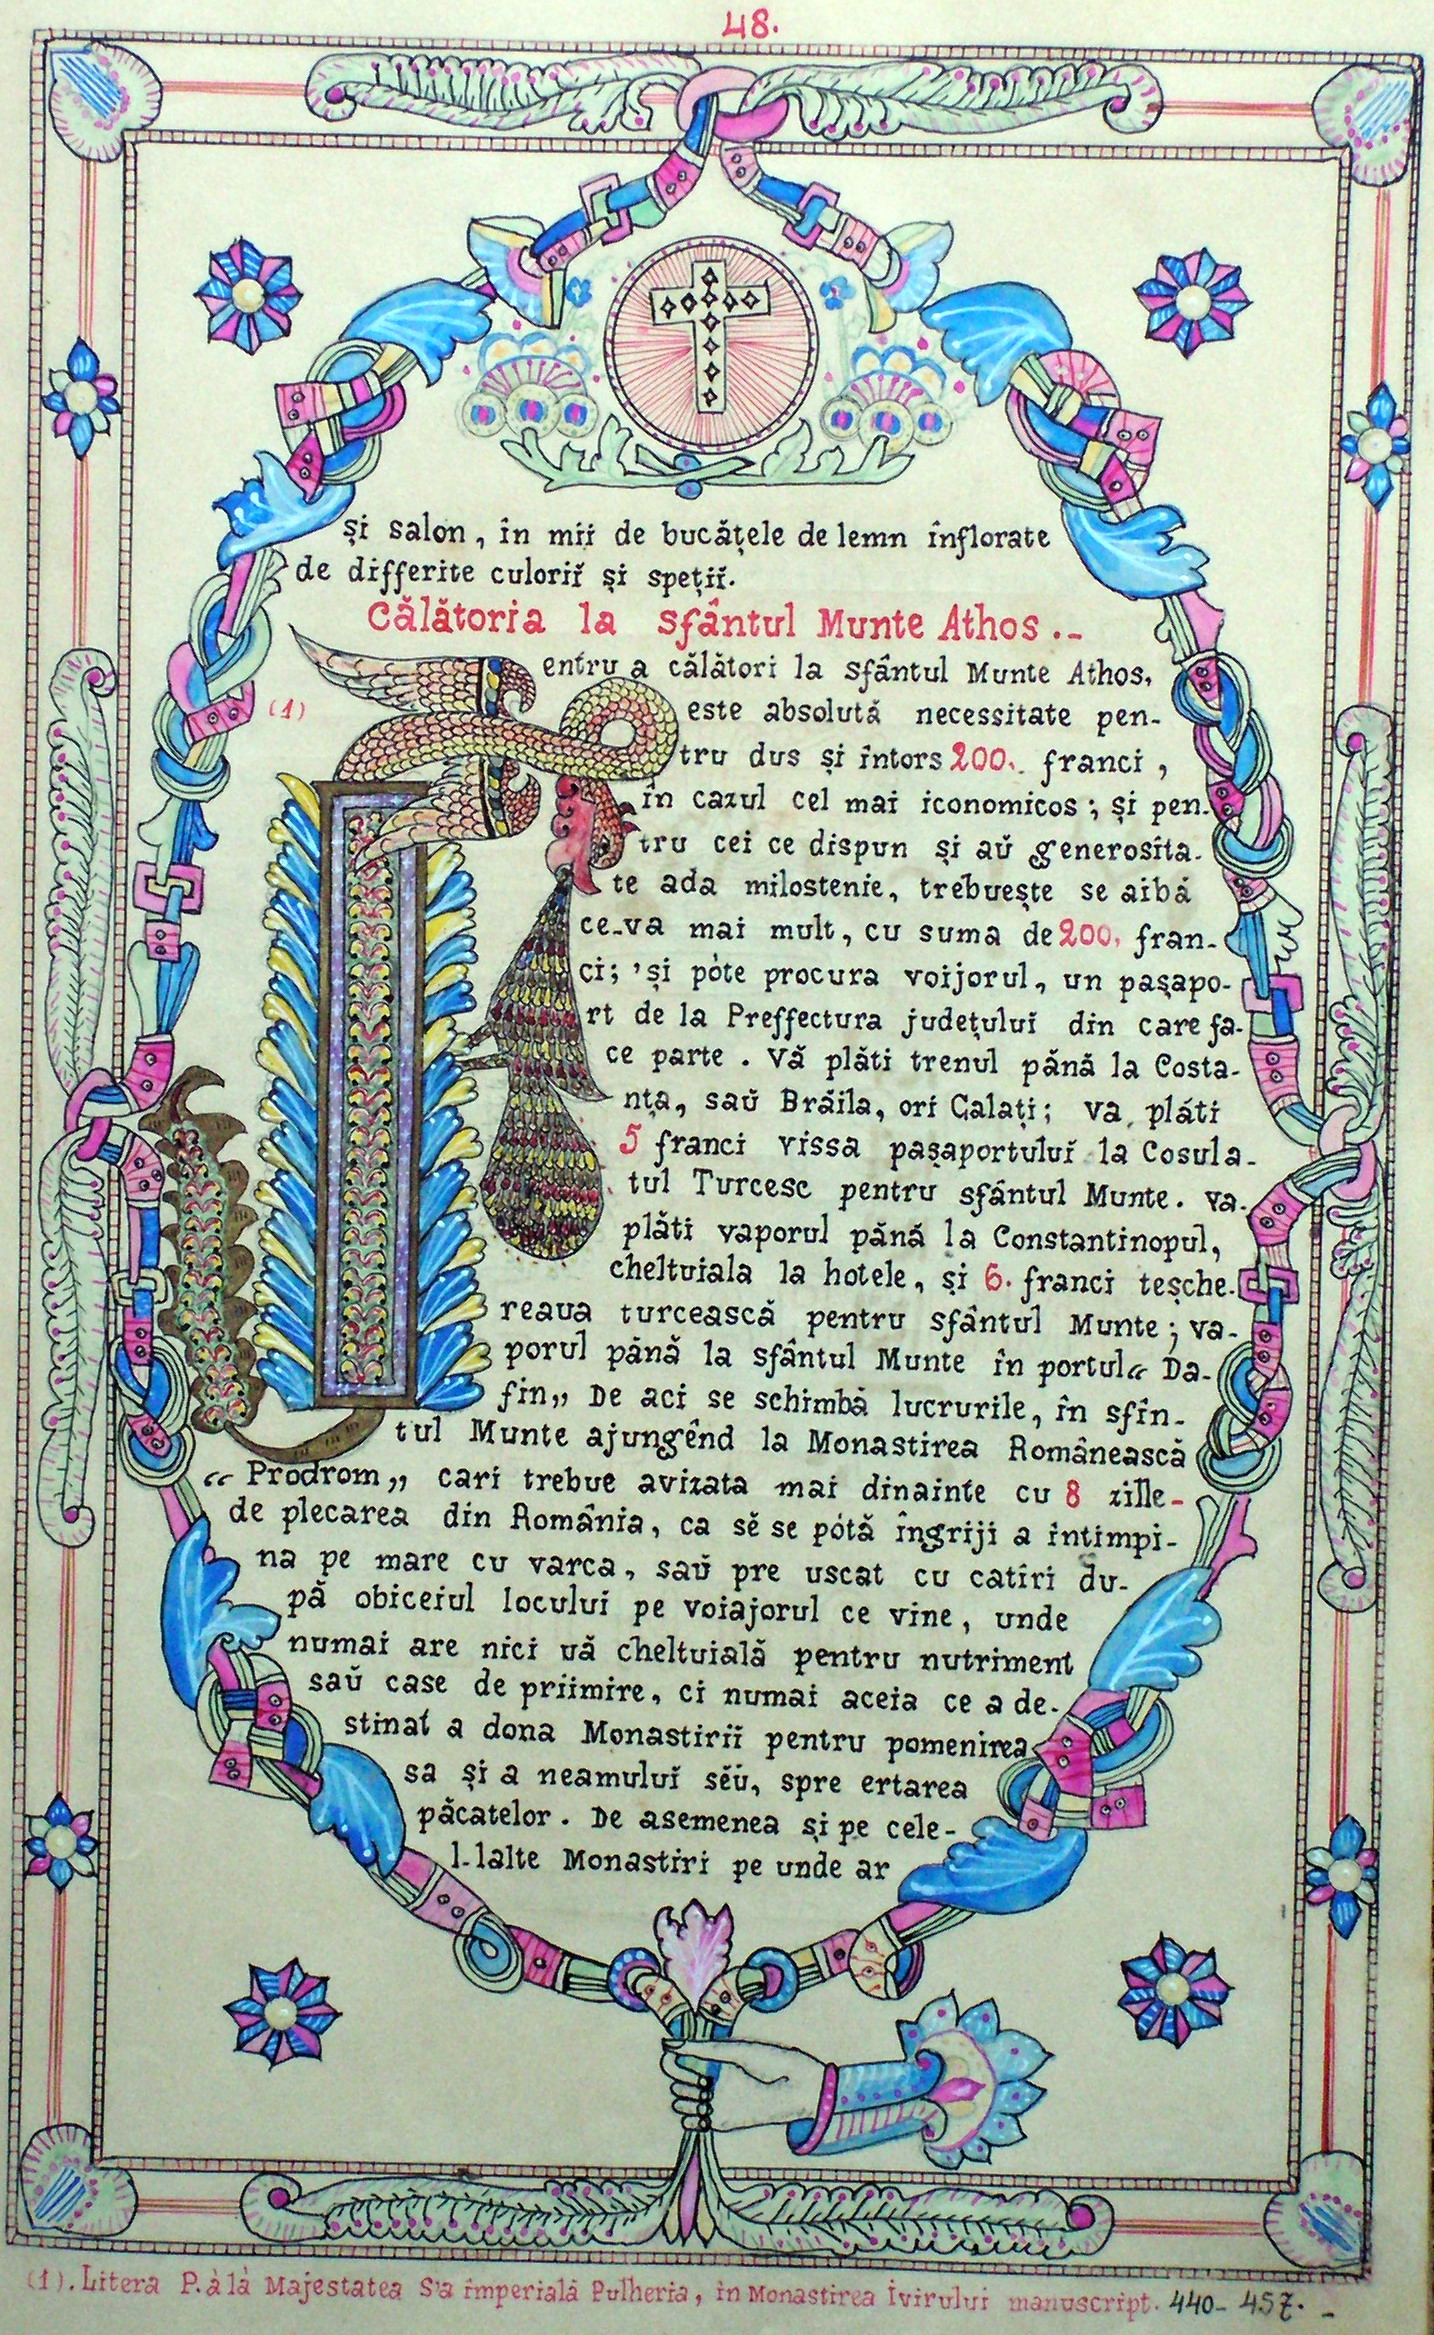 48.
și salon, în mii de bucățele de lemn înflorate
de differite culoriĭ și spețiĭ.
Călătoria la sfântul Munte Athos.-
entru a călători la sfântul Munte Athos,
(1)
este absolută necessitate pen-
tru dus și întors 200. franci,
în cazul cel mai iconomicos; și pen-
tru cei ce dispun și aŭ generosita-
te ada milostenie, trebuește se aibă
ce-va mai mult, cu suma de 200, fran-
ci; 'și pòte procura voijorul, un pașapo-
rt de la Preffectura județului din care fa-
ce parte. Vă plăti trenul pănă la Costa-
nța, saŭ Brăila, ori Galați; va, plăti
5 franci vissa pașaportuluĭ la Cosula-
tul Turcesc pentru sfântul Munte. va-
plăti vaporul pănă la Constantinopul,
cheltuiala la hotele, și 6. franci teșche-
reaua turcească pentru sfântul Munte; va-
porul pănă la sfântul Munte în portul „ Da-
fin„ De aci se schimbă lucrurile, în sfîn-
tul Munte ajungênd la Monastirea Românească
„ Prodrom„ cari trebue avizata mai dinainte cu 8 zille-
de plecarea din România, ca sĕ se pótă îngriji a întimpi-
na pe mare cu varca, saŭ pre uscat cu catîri du-
pă obiceiul loculuĭ pe voiajorul ce vine, unde
numai are nici uă cheltuială pentru nutriment
saŭ case de priimire, ci numai aceia ce a de-
stinat a dona Monastiriĭ pentru pomenirea
sa și a neamuluĭ sĕŭ, spre ertarea
păcatelor. De asemenea și pe cele-
l-lalte Monastiri pe unde ar
(1). Litera P. à là Majestatea S'a imperială Pulheria, în Monastirea Iviruluĭ manuscript. 440-457.-